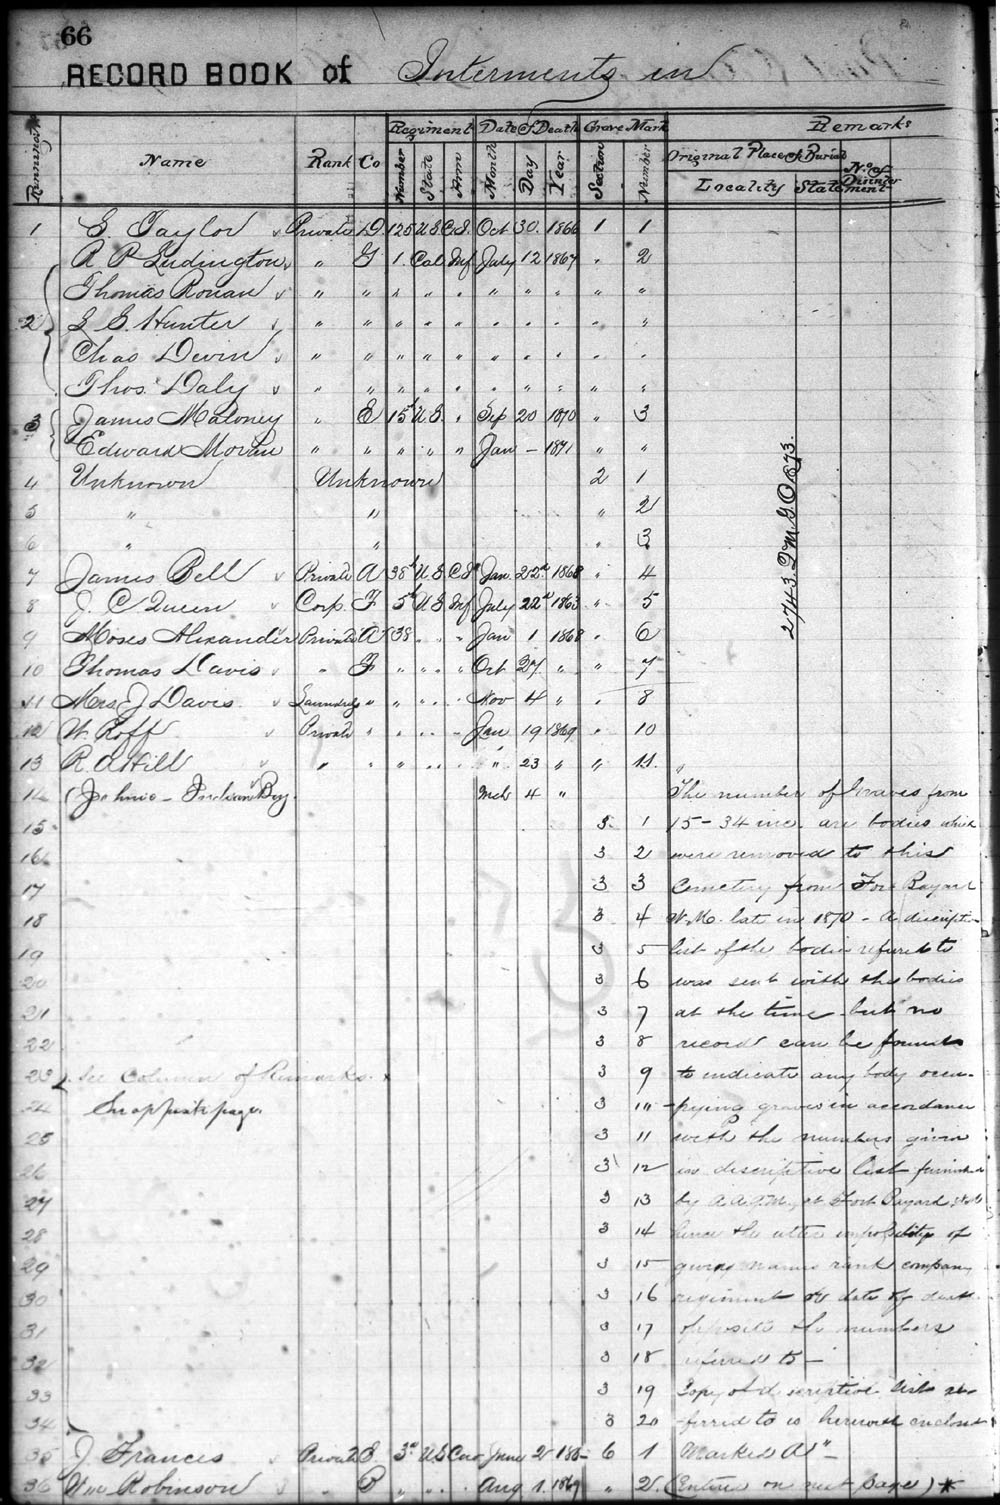 66
RECORD BOOK of Interments in
Running No. Name Rank Co Regiment Date of Death Grave Mark Remarks
Number State Arm Month Day Year Section Number Original Place of Burial No. of Disinter
Locality Statement
1 S Taylor Private D. 125 U.S. C.I. Oct 30. 1866 1 1
A P Ludington " G 1. Cal Inf July 12 1867 " 2
Thomas Ronan " " " " " " " " " "
2 L S. Hunter " " " " " " " " " "
Chas Devin " " " " " " " " " "
Thos. Daly " " " " " " " " " "
3 James Maloney " E 15 U S. " Sep 20 1870 " 3
Edward Moran " " " " " Jan - 1871 " "
4 Unknown Unknown 2 1
5 " " " 2
6 " " " 3
7 James Bell Private A 38 U.S C.I. Jan. 22 1868 " 4
8 J. C Queen Corp. F 5 U S Inf July 22 1863 " 5
9 Moses Alexander Private A 38 " " Jan 1 1868 " 6
10 Thomas Davis " F " " " Oct 27 " " 7
11 Mrs J Davis Laundress " " " " Nov 4 " " 8
12 W. Roff Private " " " " Jan 19 1869 " 10
13 R. A Hill " " " " " " 23 " " 11.
14 (Johnie - Indian Boy. Mch 4 " The number of Graves from
15 3. 1 15-34 inc. are bodies which
16 3 2 were removed to this
17 3 3 Cemetery from Fort Bayard
18 3 4 N.M. late in 1870 - A descriptive
19 3 5 list of the bodies referred to
20 3 6 was sent with the bodies
21 3 7 at the time but no
22 3 8 record can be found
23 See Column of Remarks. x 3 9 to indicate any body occu-
24 On opposite page. 3 10 -pying graves in accordance
25 3 11 with the numbers given
26 3 12 in descriptive list furnished
27 3 13 by A.A.Q.M. at Fort Bayard N.M.
28 3 14 hence the utter impossibility of
29 3 15 giving names rank company
30 3 16 regiment or date of death
31 3 17 opposite the numbers
32 3 18 referred to -
33 3 19 Copy of descriptive list re-
34 3 20 -ferred to is herewith enclosed
35 J. Frances Private 3 U S Cav June 2 6 1 Marked A" -
36 Wm Robinson " B " " " Aug 1. 1869 " 2. (Entire on next page) *
2743. Q M. G. O. 1873.